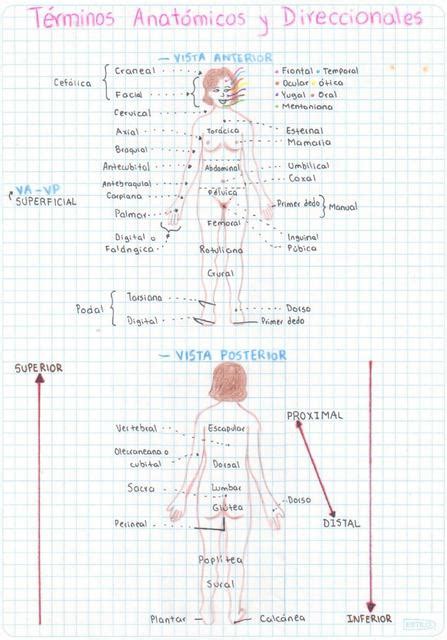 Términos Anatómicos y Direccionales
— VISTA ANTERIOR
Cefálica
Craneal
Facial
Cervical
Axial
Braquial
Antecubital
Antebraquial
Carpiana
Palmar
Digital o
Falángica
• Frontal • Temporal
• Ocular • Ótica
• Yugal • Oral
• Mentoniana
VA-VP
SUPERFICIAL
Torácica
Abdominal
Pélvica
Femoral
Rotuliana
Crural
Esternal
Mamaria
Umbilical
Coxal
Primer dedo
Manual
Inguinal
Púbica
Podal
Tarsiana
Digital
Dorso
Primer dedo
— VISTA POSTERIOR
SUPERIOR
Vertebral
Olecraneana o
cubital
Sacra
Perineal
Escapular
Dorsal
Lumbar
Glútea
Poplítea
Sural
PROXIMAL
Dorso
DISTAL
Plantar
Calcánea
INFERIOR
ESTILO